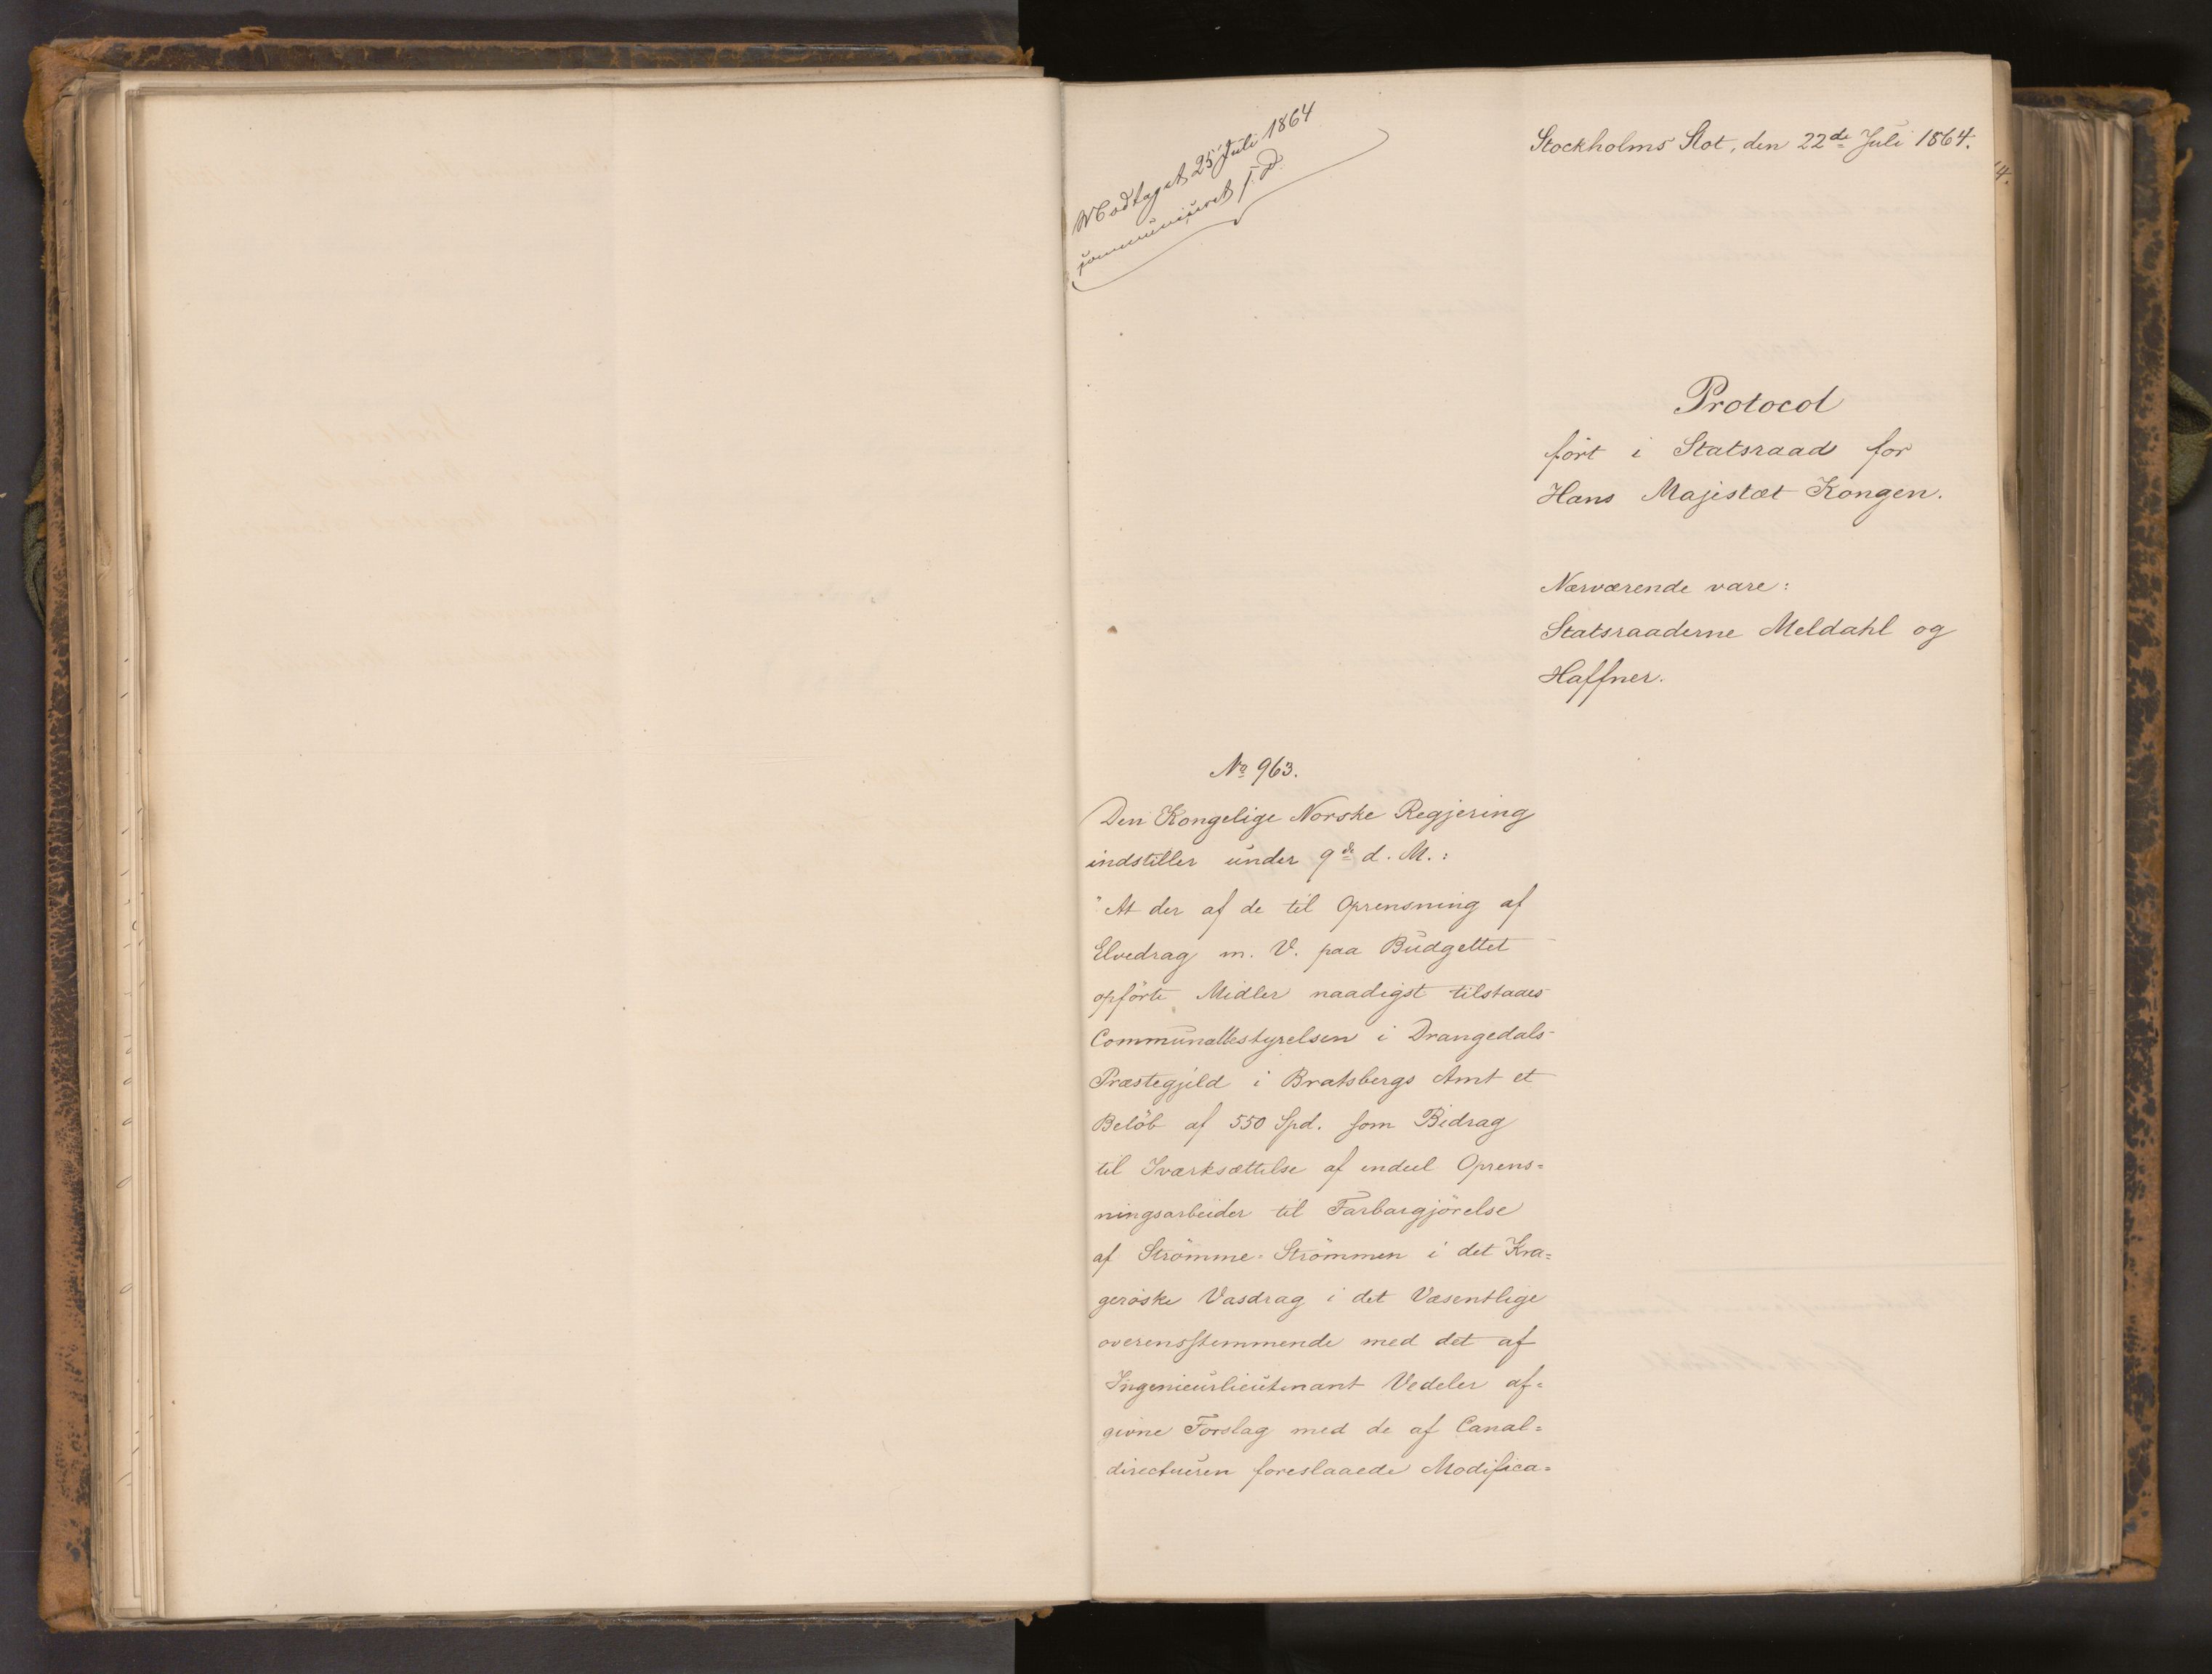 Modtaget 25 Juli 1864
communiceret s. D.
Stockholms Slot, den 22de Juli 1864.
Protocol
fört i Statsraad for
Hans Majestæt Kongen.
Nærværende vare:
Statsraaderne Meldahl og
Haffner.
No 963.
Den Kongelige Norske Regjering
indstiller under 9de d. M.:
"At der af de til Oprensning af
Elvedrag m. V. paa Budgettet
opförte Midler naadigst tilstaaes
Communalbestyrelsen i Drangedals
Præstegjeld i Bratsbergs Amt et
Belöb af 550 Spd. som Bidrag
til Iværksættelse af endeel Oprens=
ningsarbeider til Farbargjörelse
af Strömme-Strömmen i det Kra=
geröske Vasdrag i det Væsentlige
overensstemmende med det af
Ingenieurlieutenant Vedeler af=
givne Forslag med de af Canal=
directeuren foreslaaede Modifica=